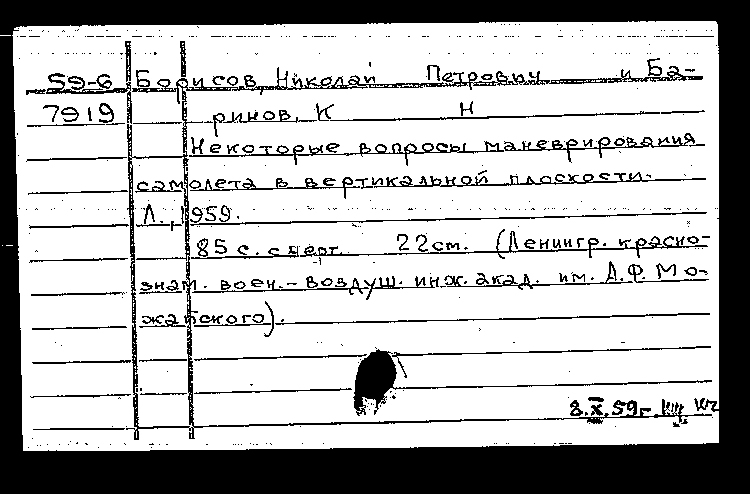 59-6 Борисов, Николай Петрович и Ба-
7919 ринов, К Н
Некоторые вопросы маневрирования
самолета в вертикальной плоскости.
Л., 1959.
85 с. с черт. 22 см. (Ленингр. красно-
знам. воен.-воздуш. инж. акад. им. А.Ф. Мо-
жайского).
8.X.59г.